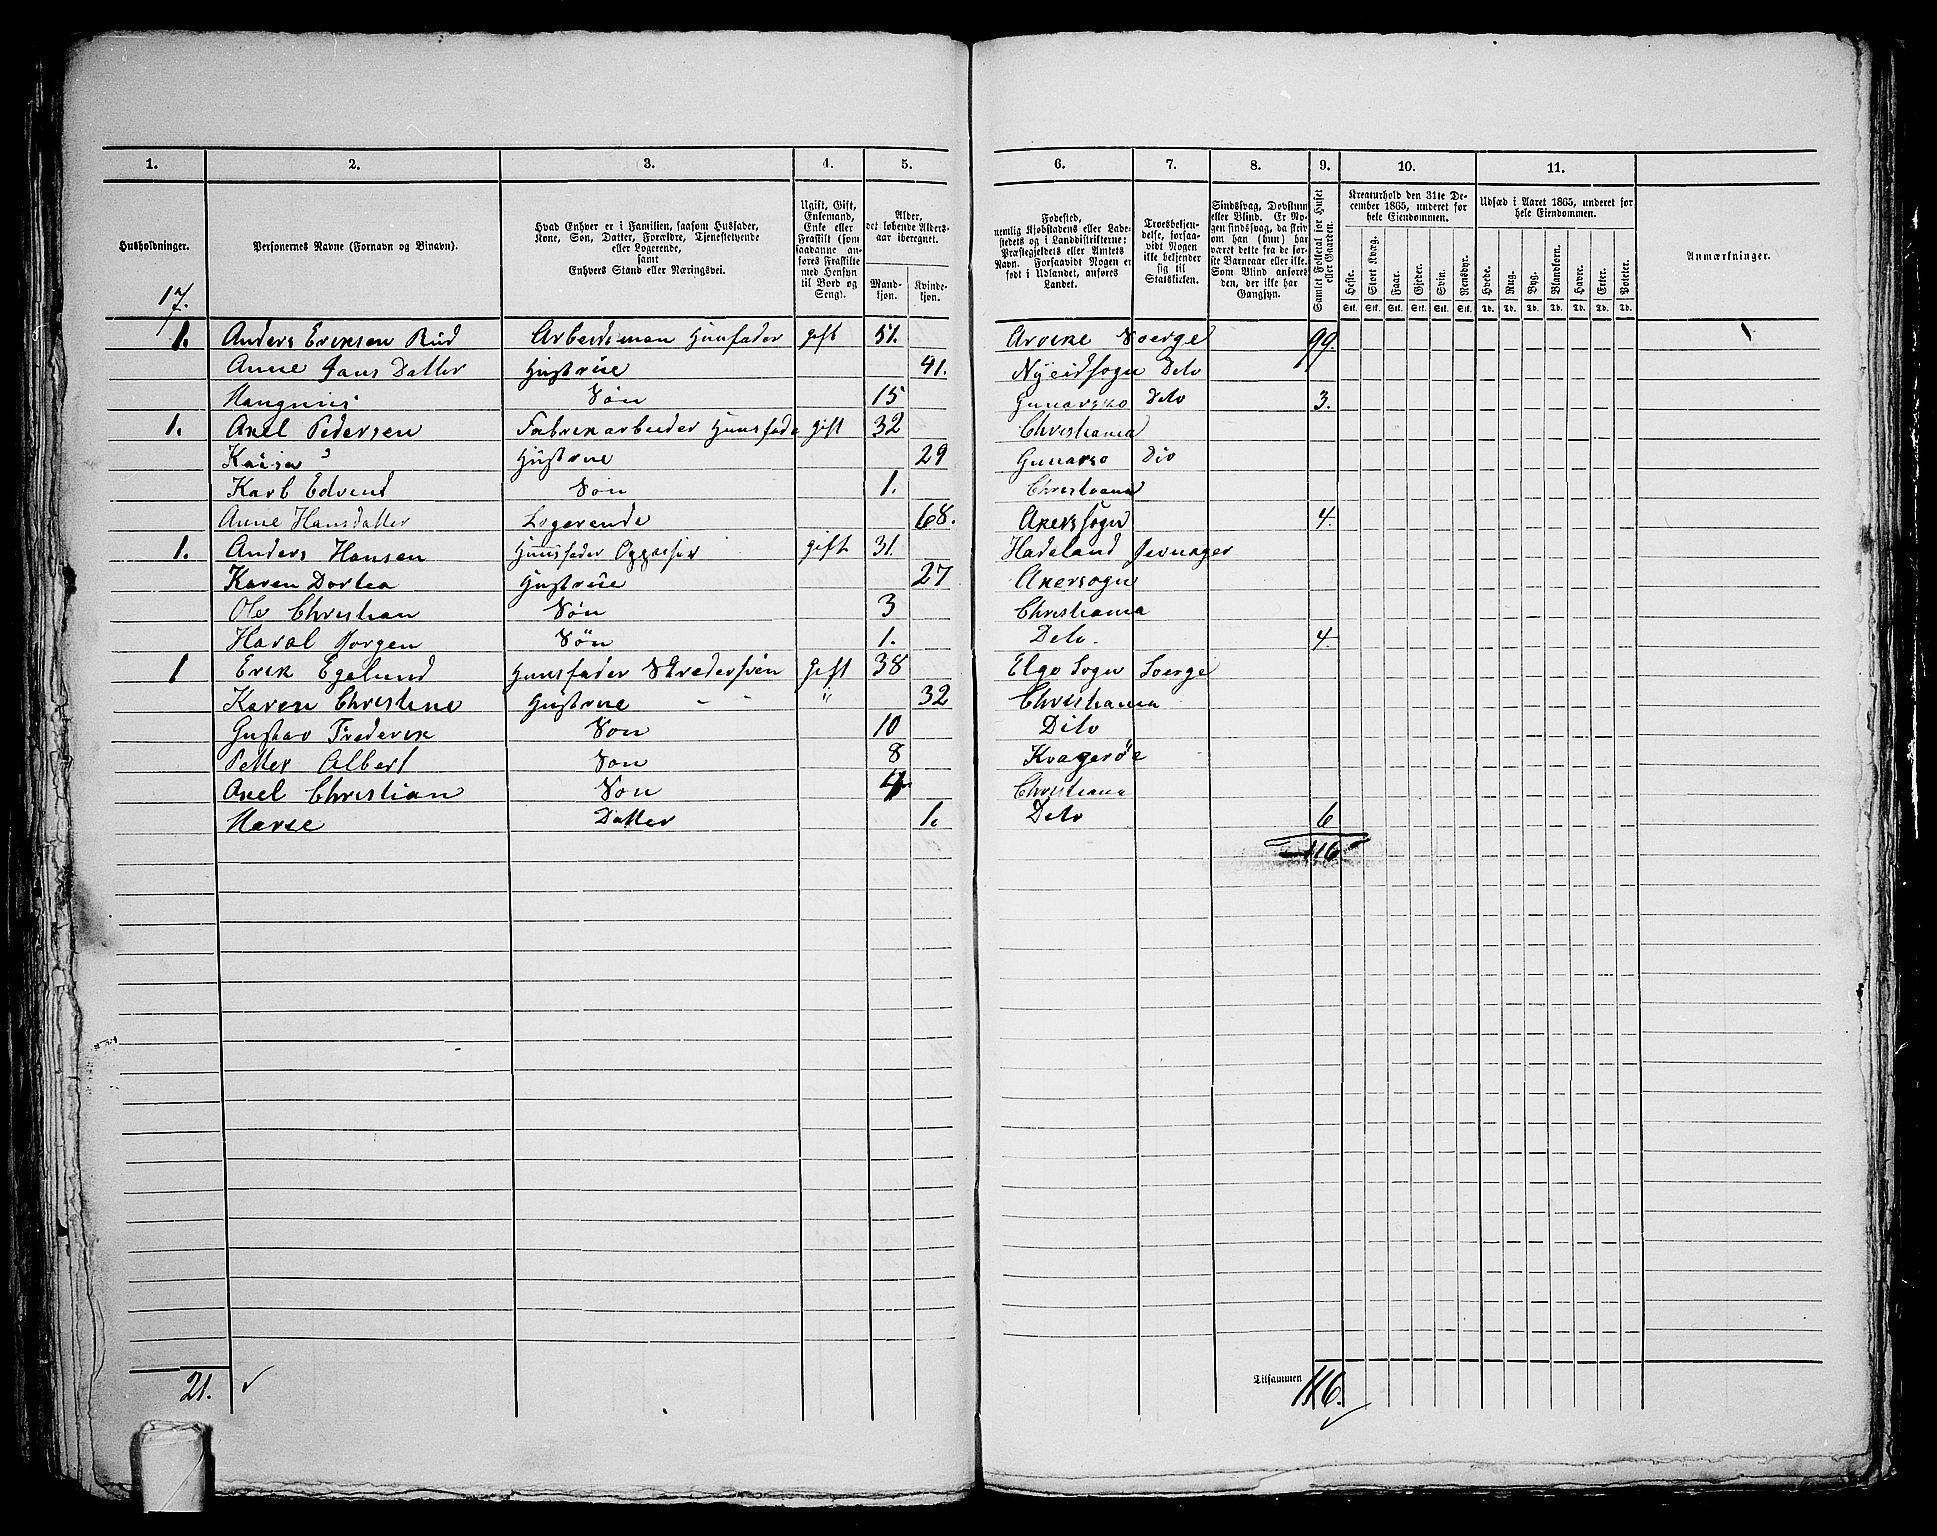 1. 2. 3. 4. 5. 6. 7. 8. 9. 10. 11.
Husholdninger.
Personernes Navne (Fornavn og Binavn).
Hvad Enhver er i Familien, saasom Husfader,
Kone, Søn, Datter, Forældre, Tjenestetyende
eller Logerende,
samt
Enhvers Stand eller Næringsvei.
Ugift, Gift,
Enkemand,
Enke eller
Fraskilt (som
saadanne an-
føres Fraskilte
med Hensyn
til Bord og
Seng).
Alder,
det løbende Alders-
aar iberegnet.
Mand-
kjøn.
Kvinde-
kjøn.
Fødested,
nemlig Kjøbstadens eller Lade-
stedets og i Landdistrikterne:
Præstegjeldets eller Amtets
Navn. Forsaavidt Nogen er
født i Udlandet, anføres
Landet.
Troesbekjen-
delse, forsaa-
vidt Nogen
ikke bekjender
sig til
Statskirken.
Sindssvag, Døvstum
eller Blind. Er No-
gen sindssvag, da skriv
om han (hun) har
været dette fra de før-
ste Barneaar eller ikke.
Som Blind anføres
den, der ikke har
Gangsyn.
Samlet Folketal for Huset
eller Gaarden.
Kreaturhold den 31te De-
cember 1865, underet for
hele Eiendommen.
Heste. Stort Kvæg. Faar. Gjeder. Svin. Rensdyr.
Stk. Stk. Stk. Stk. Stk. Stk.
Udsæd i Aaret 1865, underet for
hele Eiendommen.
Hvede. Rug. Byg. Blandkorn. Havre. Erter. Poteter.
Td. Td. Td. Td. Td. Td. Td.
Anmærkninger.
17.
1. Anders Eriksen Rud Arbeidsman Huusfader gift 51. Arvike Sverge 99.
Anne Jans Datter Hustrue 41. Nyeidsogn Dito
Mangnus Søn 15 Gunarsko Dito 3.
1. Axel Pedersen Fabrikarbeider Huusfade gift 32 Christiania
Kaisa Hustrue 29 Gunarso Dio
Karl Edvend Søn 1. Christiania
Anne Hansdatter Logerende 68. Akerssogn 4.
1. Anders Hansen Huusfader Oppasser gift 31. Hadeland Jevnager
Karen Dortea Hustrue 27 Akersogn
Ole Christian Søn 3 Christiania
Haral Jorgen Søn 1. Dito. 4.
1 Erik Egelund Huusfader Skredersven Gift 38 Elgo Sogn Sverge
Karen Christine Hustrue " " 32 Christiania
Gustav Frederik Son 10 Dito
Petter Albert Son 8 Kvagerøe
Axel Christian Son 4 Christiana
Marie Datter 1. Dito 6
116
21. Tilsammen 116.